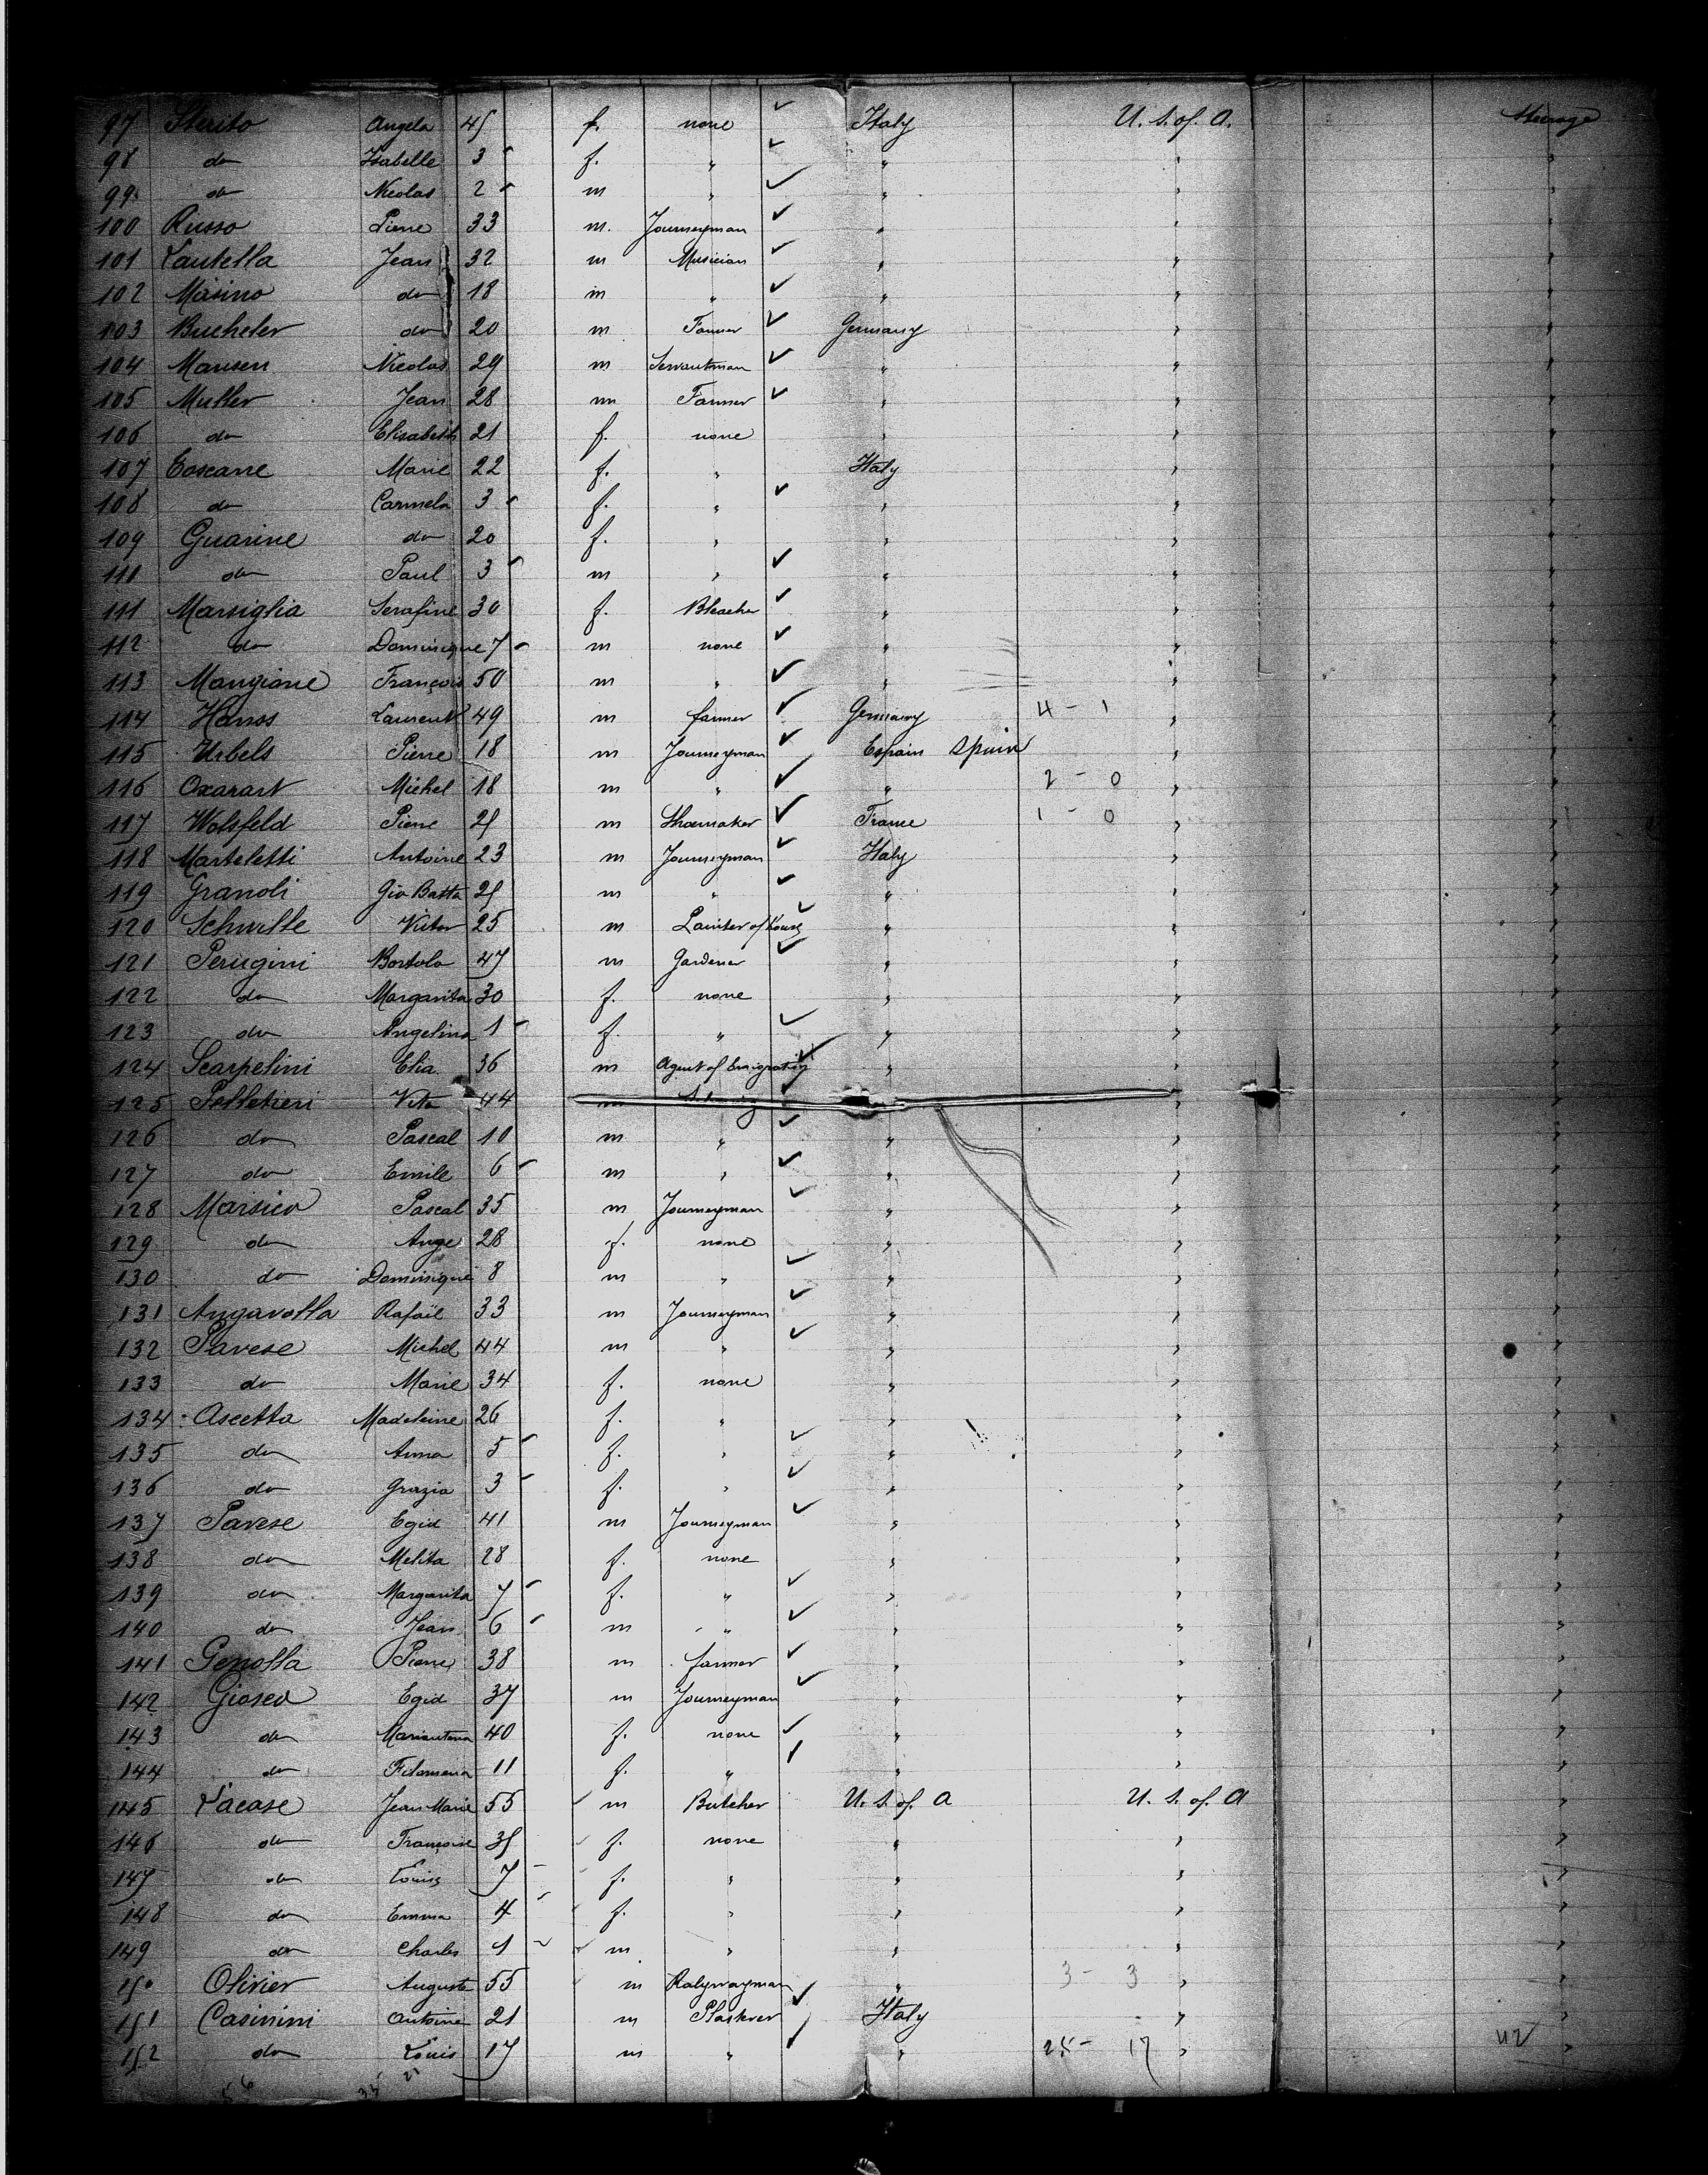 97 Sterito Angela 45 f. none Italy U. S. of. A. Steerage
98 do Isabelle 3 f. " " " "
99 do Nicolas 2 m " " " "
100 Russo Pierre 33 m. Journeyman " " "
101 Lautella Jean 32 m Musician " " "
102 Masino do 18 m " " " "
103 Bucheler do 20 m Farmer Germany " "
104 Mansen Nicolas 29 m Servantman " " "
105 Muller Jean 28 m Farmer " " "
106 do Elisabeth 21 f. none " " "
107 Marie 22 f. " Italy " "
108 do Carmela 3 f. " " " "
109 Guarine do 20 f. " " " "
110 do Paul 3 m " " " "
111 Marsiglia Serafine 30 f. Bleacher " " "
112 do Dominique 7 m none " " "
113 Mangione François 50 m " " " "
114 Hanss Laurent 49 m farmer Germany 4 - 1 " "
115 Urbels Pierre 18 m Journeyman Espain Spain " "
116 Oxarart Michel 18 m " " 2 - 0 " "
117 Wolsfeld Pierre 25 m Shoemaker France 1 - 0 " "
118 Marteletti Antoine 23 m Journeyman Italy " "
119 Granoli Gio Batta 25 m " " " "
120 Schwille Victor 25 m Painter of house " " "
121 Perugini Bortolo 47 m Gardener " " "
122 do Margarita 30 f. none " " "
123 do Angelina 1 f. " " " "
124 Scarpelini Elia 36 m Agent of Emigration " " "
125 Pelletieri Vito 44 m " "
126 do Pascal 10 m " " " "
127 do Emile 6 m " " " "
128 Marsico Pascal 35 m Journeyman " " "
129 do Ange 28 f. none " " "
130 do Dominique 8 m " " " "
131 Angarolla Rafaël 33 m Journeyman " " "
132 Pavese Michel 44 m " " " "
133 do Marie 34 f. none " " "
134 Ascetta Madeleine 26 f. " " " "
135 do Anna 5 f. " " " "
136 do Grazia 3 f. " " " "
137 Pavese Egid 41 m Journeyman " " "
138 do Melita 28 f. none " " "
139 do Margarita 7 f. " " " "
140 do Jean 6 m " " " "
141 Genolla Pierre 38 m farmer " " "
142 Gioseo Egid 37 m Journeyman " " "
143 do Mariantona 40 f. none " " "
144 do Filomena 11 f. " " " "
145 Lacase Jean Marie 55 m Butcher U. S. of. A U. S. of. A "
146 do Françoise 35 f. none " " "
147 do Louise 7 f. " " " "
148 do Emma 4 f. " " " "
149 do Charles 1 m " " " "
150 Olivier Auguste 55 m Ralywayman " 3 - 3 " "
151 Casinini Antoine 21 m Plasterer Italy " "
152 do Louis 17 m " " 25 - 17 " "